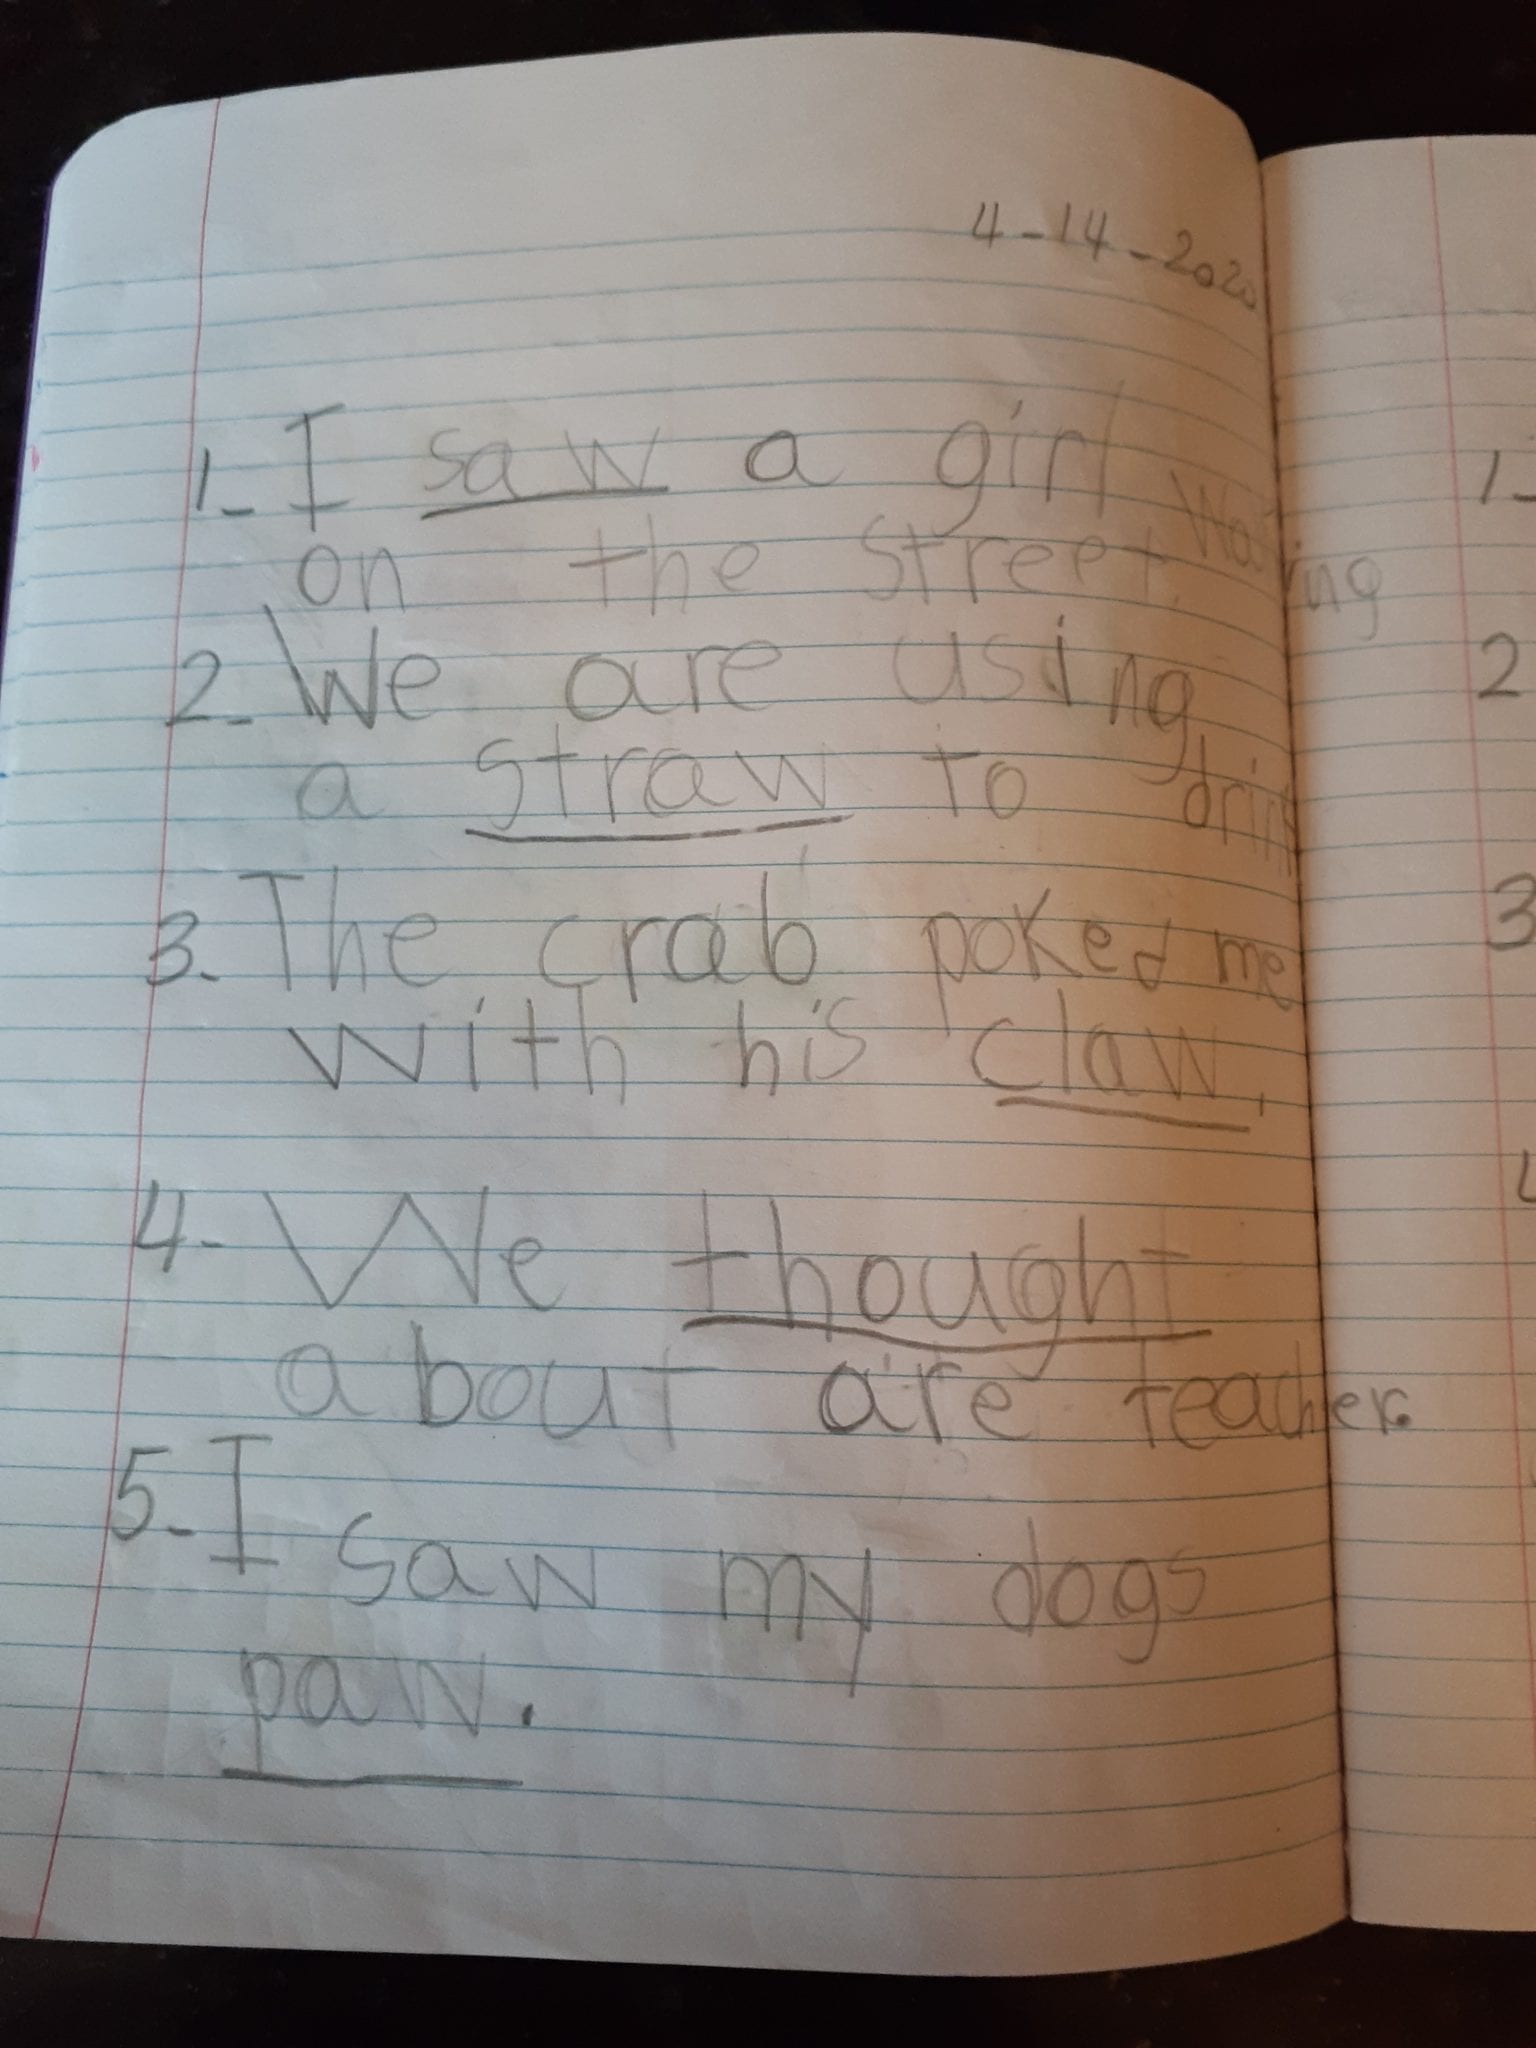 4-14-2020
1- I saw a girl
on the street.
2- We are using
a straw to drink
3- The crab poked me
with his claw.
4- We thought
about are teacher.
5- I saw my dogs
paw.
1-
2
3